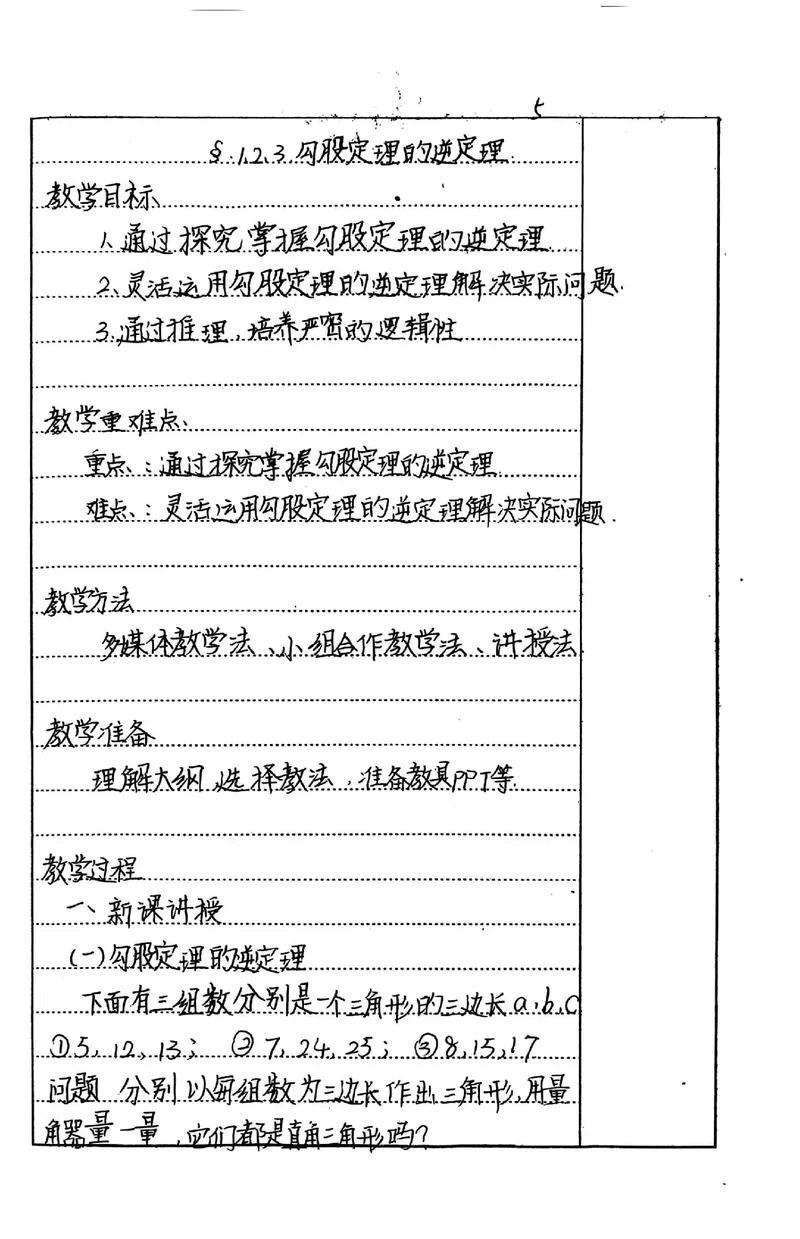 5
§.1.2.3.勾股定理的逆定理.
教学目标
1.通过探究掌握勾股定理的逆定理.
2.灵活运用勾股定理的逆定理解决实际问题.
3.通过推理,培养严密的逻辑性
教学重难点、
重点、:通过探究掌握勾股定理的逆定理
难点、:灵活运用勾股定理的逆定理解决实际问题.
教学方法
多媒体教学法、小组合作教学法、讲授法
教学准备
理解大纲,选择教法,准备教具PPT等
教学过程
一、新课讲授
(一)勾股定理的逆定理
下面有三组数分别是一个三角形的三边长a,b,c
①5,12,13; ②7,24,25; ③8,15,17
问题 分别以每组数为三边长作出三角形,用量
角器量一量,它们都是直角三角形吗?